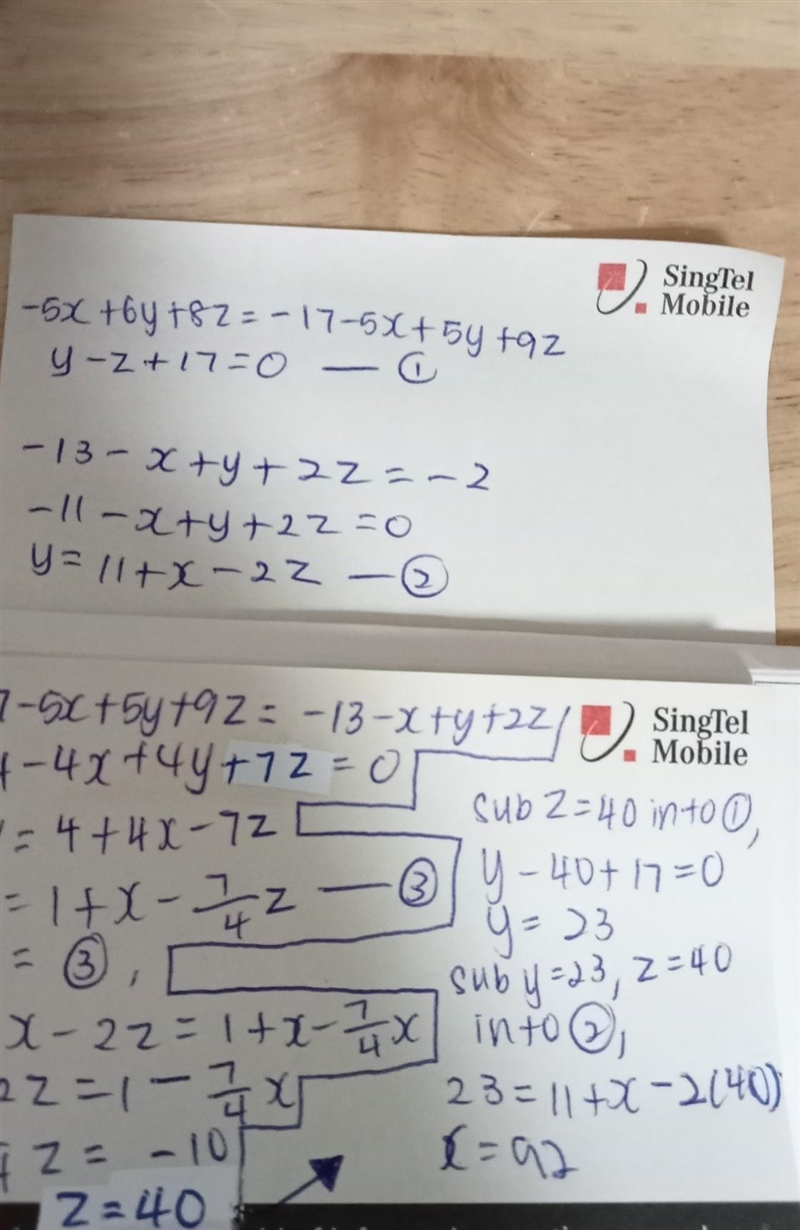 SingTel
Mobile
-5x+6y+8z=-17-5x+5y+9z
y-z+17=0 — ①
-13-x+y+2z=-2
-11-x+y+2z=0
y=11+x-2z — ②
SingTel
Mobile
7-5x+5y+9z=-13-x+y+2z
-4x+4y+7z=0
=4+4x-7z
=1+x-7/4z — ③
= ③,
x-2z=1+x-7/4x
2z=1-7/4x
z=-10
z=40
sub z=40 into ①,
y-40+17=0
y=23
sub y=23, z=40
into ②,
23=11+x-2(40)
x=92